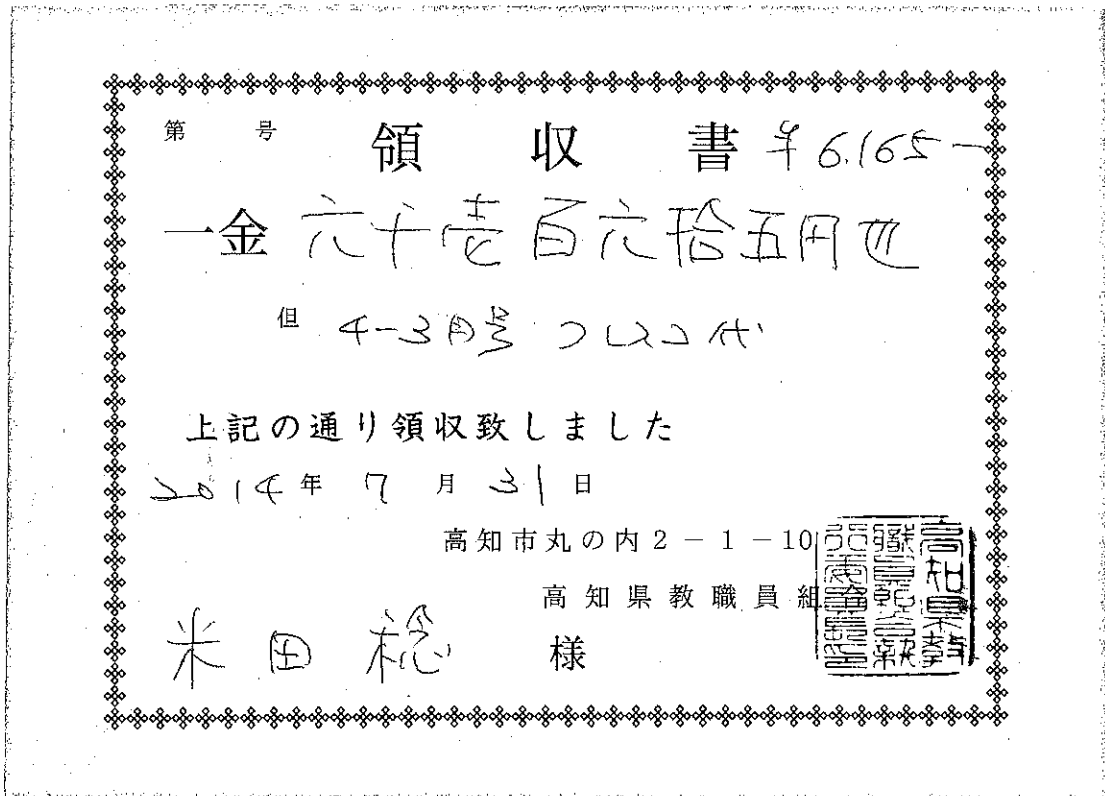 第　号　領収書 ¥6,165-
一金 六千壱百六拾五円也
但 4-3月号 クレスコ代
上記の通り領収致しました
2014年 7月 31日
高知市丸の内2－1－10
高知県教職員組合
米田 稔 様
高知県教
職員組合執
行委員長印